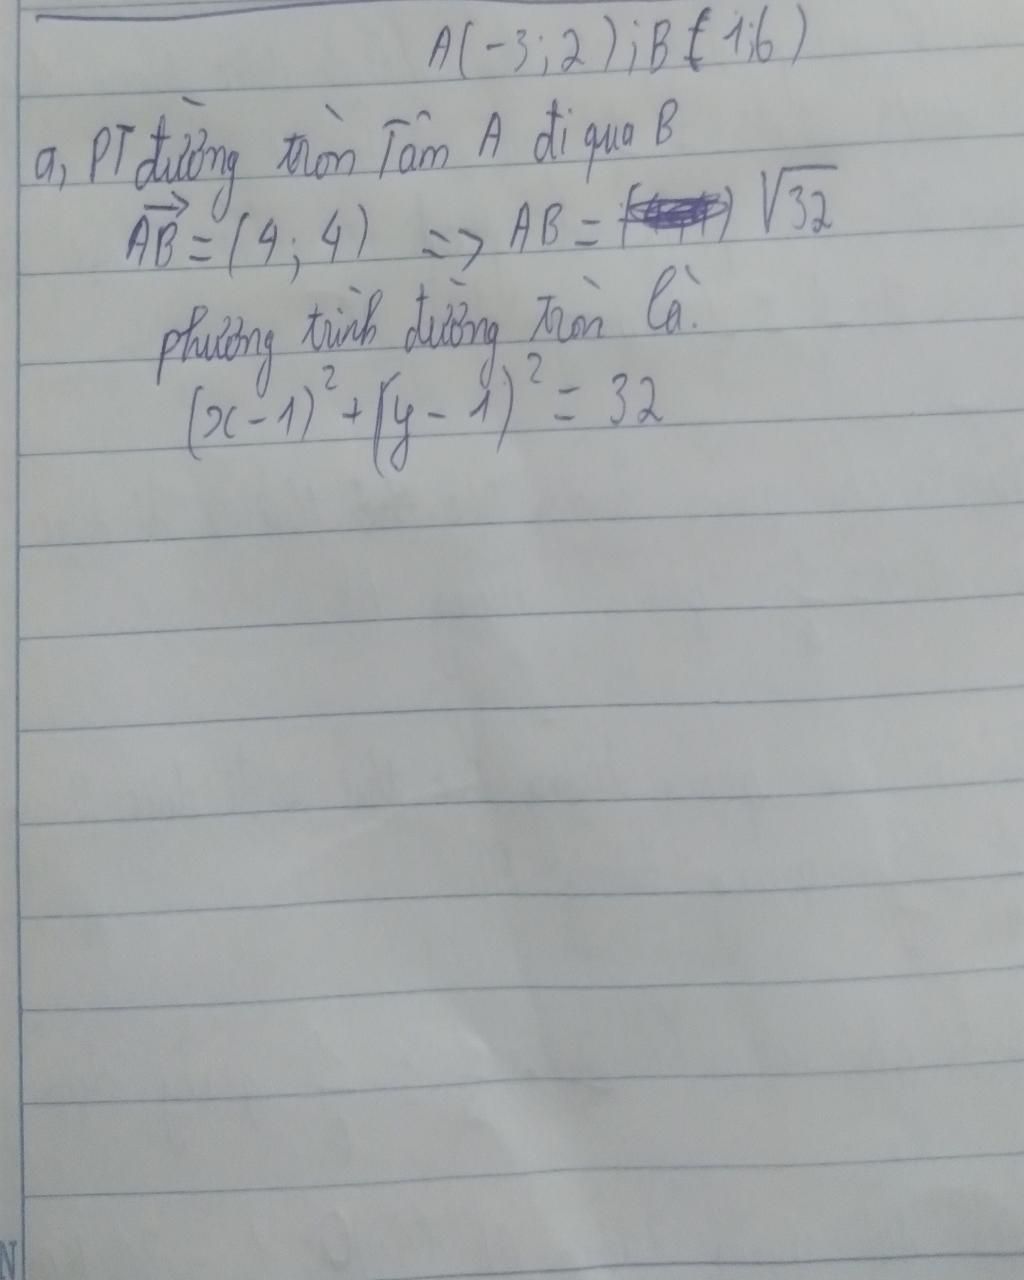 A(-3;2);B(1;6)
a, PT đường tròn Tâm A đi qua B
AB→ = (4; 4) => AB = √32
phương trình đường tròn là:
(x-1)² + (y-1)² = 32
N